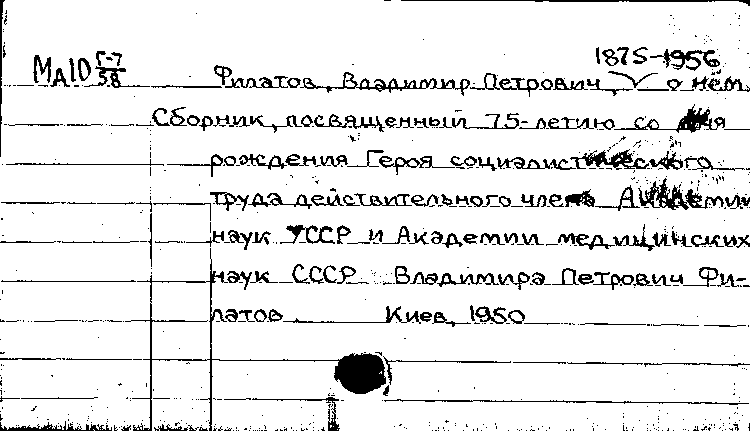 1875-1956
МА10 Г-7/58 Филатов, Владимир Петрович, о нём
Сборник, посвященный 75-летию со дня
рождения Героя социалистического
труда действительного члена Академии
наук УССР и Академии медицинских
наук СССР Владимира Петрович Фи-
латов. Киев, 1950